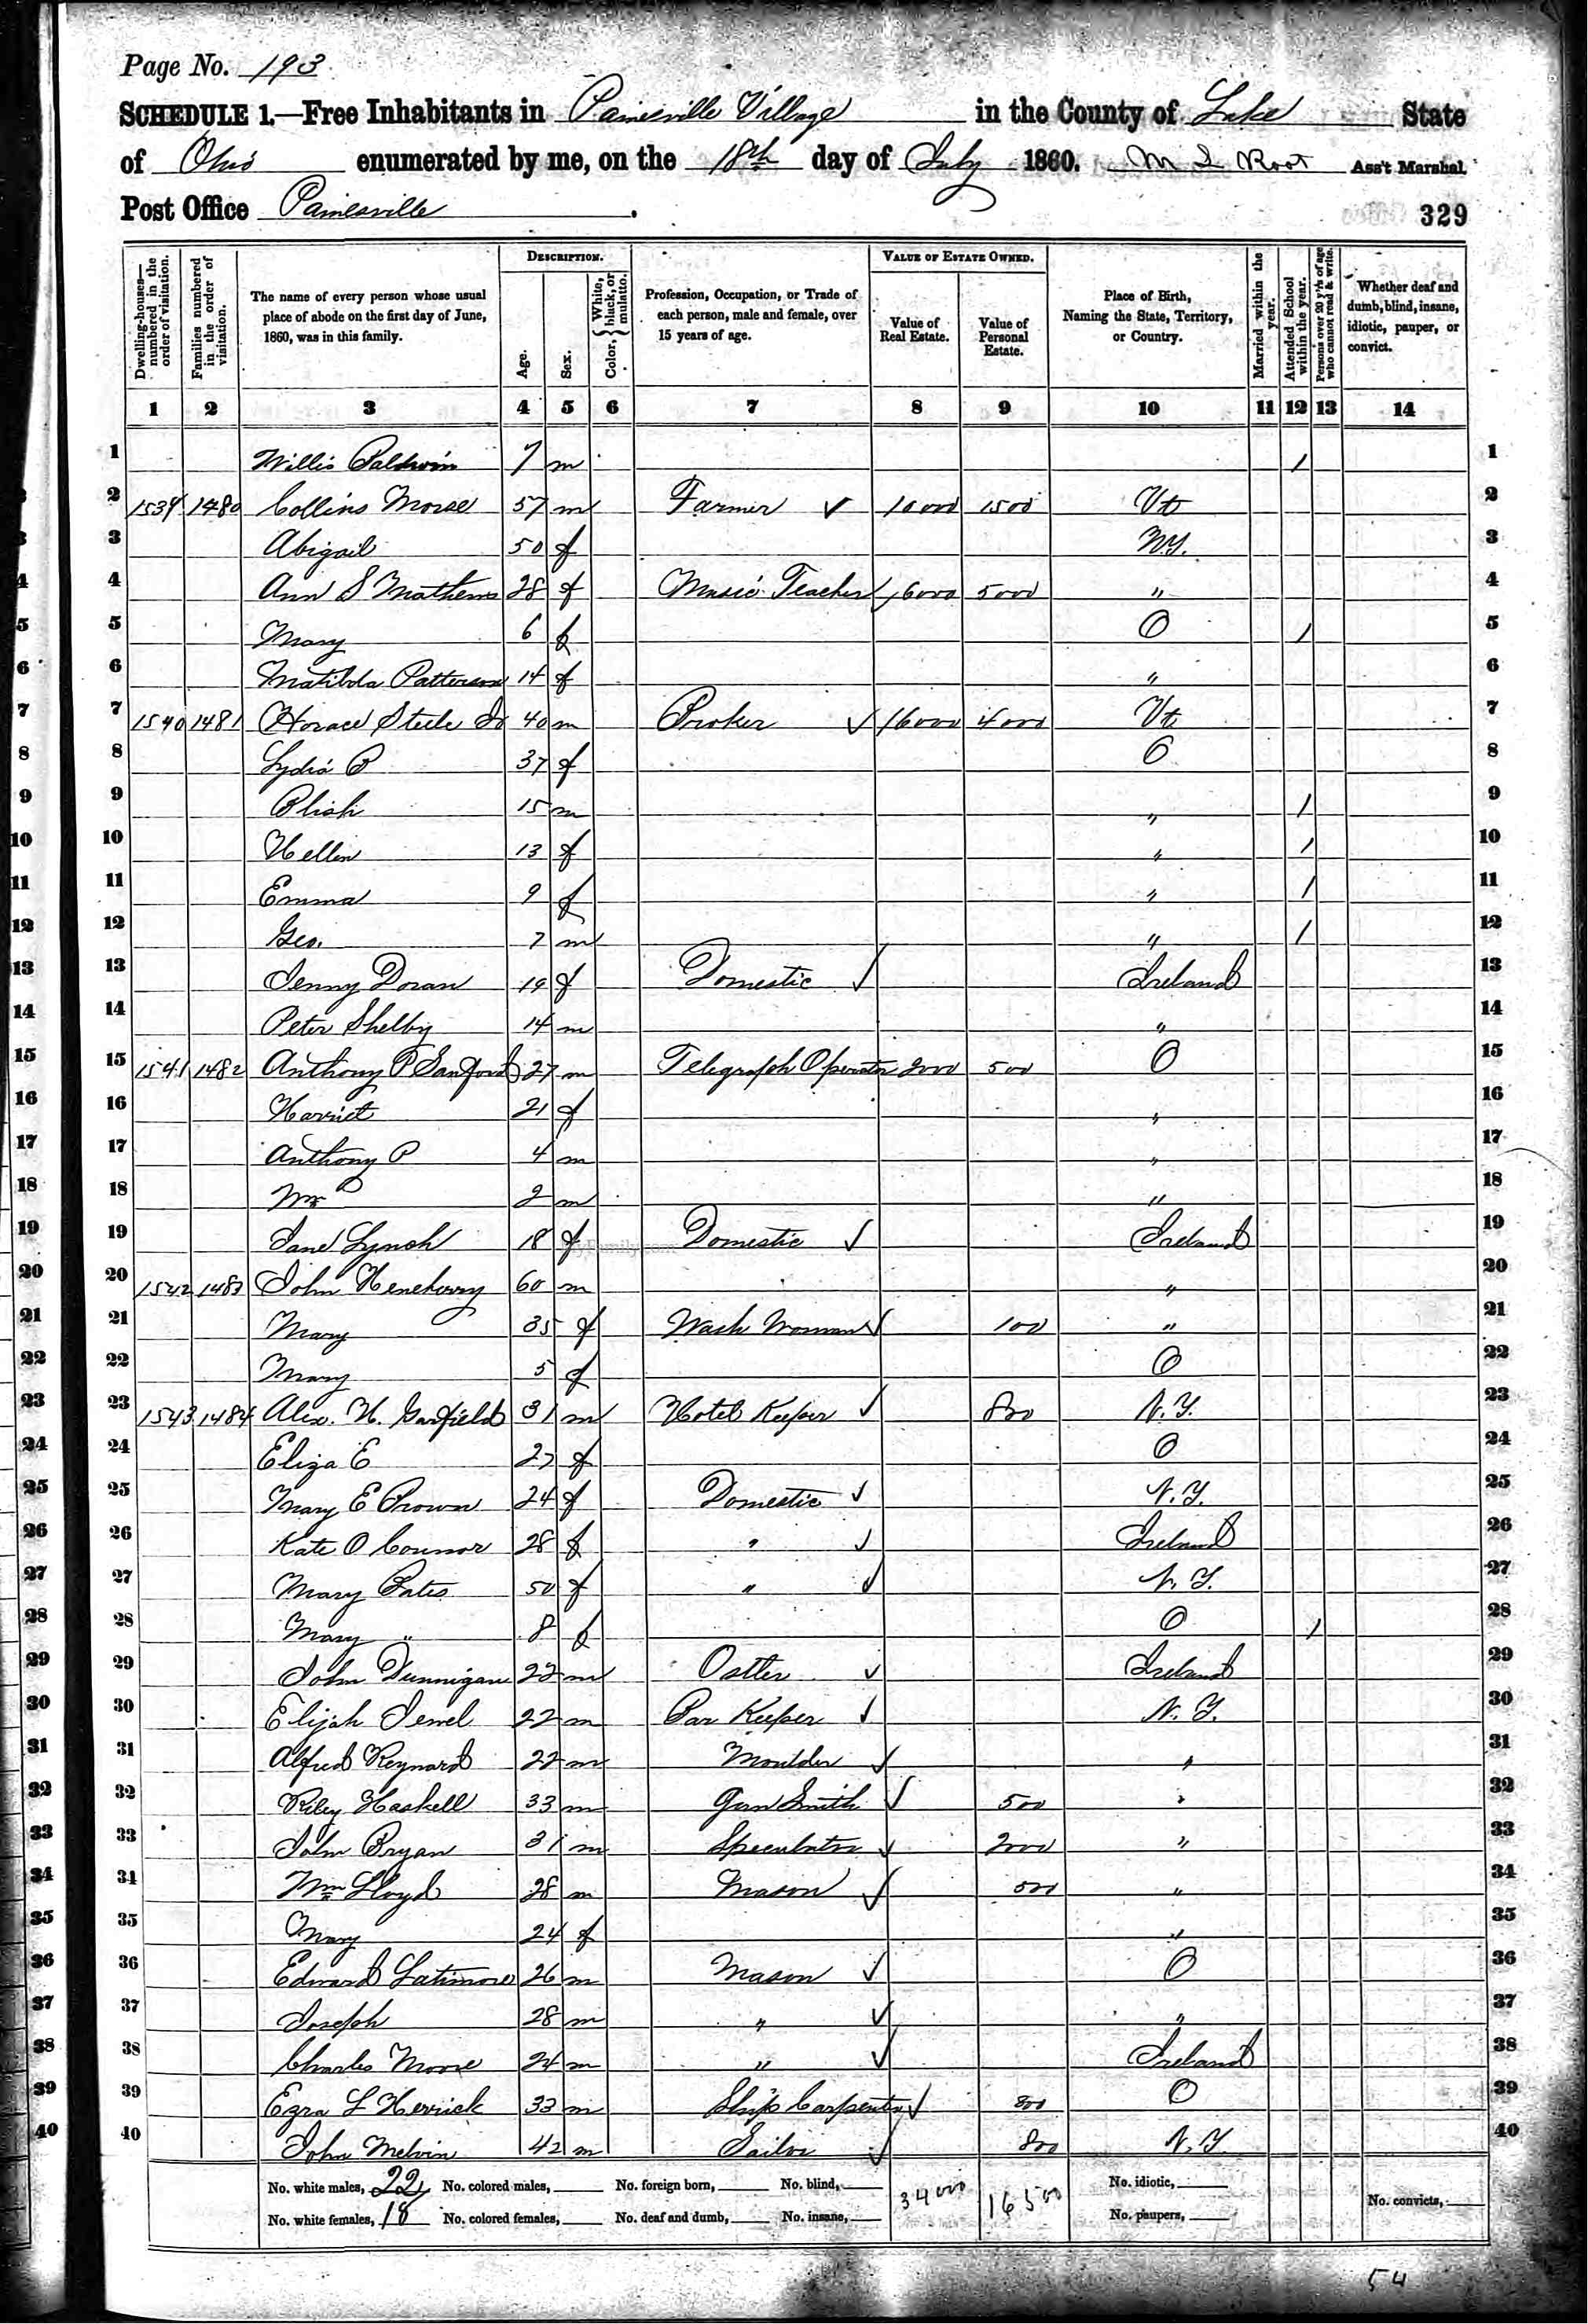 Page No. 193
SCHEDULE 1.—Free Inhabitants in Painesville Village in the County of Lake State
of Ohio enumerated by me, on the 18th day of July 1860. M L Root Ass't Marshal.
Post Office Painesville . 329
Dwelling-houses—numbered in the order of visitation.
Families numbered in the order of visitation.
The name of every person whose usual place of abode on the first day of June, 1860, was in this family.
DESCRIPTION.
Age.
Sex.
Color, { White, black, or mulatto.
Profession, Occupation, or Trade of each person, male and female, over 15 years of age.
VALUE OF ESTATE OWNED.
Value of Real Estate.
Value of Personal Estate.
Place of Birth, Naming the State, Territory, or Country.
Married within the year.
Attended School within the year.
Persons over 20 y'rs of age who cannot read & write.
Whether deaf and dumb, blind, insane, idiotic, pauper, or convict.
1 2 3 4 5 6 7 8 9 10 11 12 13 14
1 Willis Baldwin 7 m / 1
2 1539 1480 Collins Morse 57 m Farmer ✓ 10000 1500 Vt 2
3 Abigail 50 f N.Y. 3
4 Ann S Mathews 28 f Music Teacher ✓ 6000 5000 " 4
5 Mary 6 f O / 5
6 Matilda Patterson 14 f " 6
7 1540 1481 Horace Steele Jr 40 m Broker ✓ 16000 4000 Vt 7
8 Lydia B 37 f O 8
9 15 m " / 9
10 Hellen 13 f " / 10
11 Emma 9 f " / 11
12 Geo. 7 m " / 12
13 Jenny Doran 19 f Domestic ✓ Ireland 13
14 Peter Shelby 14 m " 14
15 1541 1482 Anthony P Sanford 27 m Telegraph Operator 2000 500 O 15
16 Harriet 21 f " 16
17 Anthony P 4 m " 17
18 Wm 2 m " 18
19 Jane Lynch 18 f Domestic ✓ Ireland 19
20 1542 1483 John Heneberry 60 m " 20
21 Mary 35 f Wash Woman ✓ 100 " 21
22 Mary 5 f O 22
23 1543 1484 Alex. H. Garfield 31 m Hotel Keeper ✓ 800 N.Y. 23
24 Eliza E 27 f O 24
25 Mary E Brown 24 f Domestic ✓ N.Y. 25
26 Kate O Connor 28 f " ✓ Ireland 26
27 Mary Bates 50 f " ✓ N.Y. 27
28 Mary " 8 f O / 28
29 John Dunnigan 22 m Ostler ✓ Ireland 29
30 Elijah Jewel 22 m Bar Keeper ✓ N.Y. 30
31 Alfred Reynard 22 m Moulder ✓ " 31
32 Riley Haskell 33 m Gun Smith ✓ 500 " 32
33 John Bryan 31 m Speculator ✓ 2000 " 33
34 Wm Lloyd 28 m Mason ✓ 500 " 34
35 Mary 24 f " 35
36 Edward Latimore 26 m Mason ✓ O 36
37 Joseph 28 m " ✓ " 37
38 Charles Moore 24 m " ✓ Ireland 38
39 Ezra L Herrick 33 m Ship Carpenter ✓ 800 O 39
40 John Melvin 42 m Sailor ✓ 800 N.Y. 40
No. white males, 22 No. colored males, No. foreign born, No. blind, 34000 16500 No. idiotic,
No. white females, 18 No. colored females, No. deaf and dumb, No. insane, No. paupers, No. convicts,
54